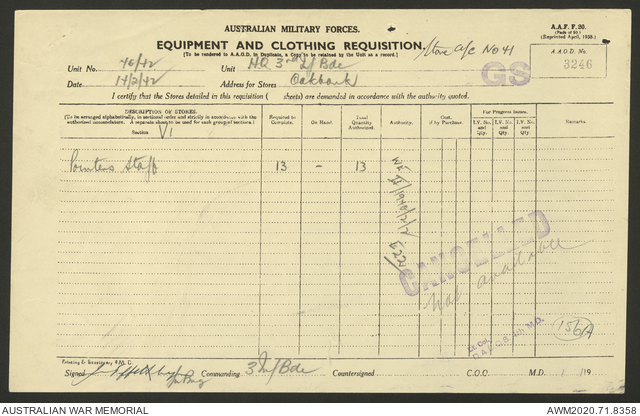 AUSTRALIAN MILITARY FORCES.
A.A.F. F. 20.
(Pads of 50)
(Reprinted April, 1938.)
EQUIPMENT AND CLOTHING REQUISITION.
Store a/c No 41
(To be rendered to A.A.O.D. in Duplicate, a Copy to be retained by the Unit as a record.)
A.A.O.D. No.
3246
Unit No. 46/42 Unit HQ 3rd L/Bde
GS
Date 14/2/42 Address for Stores Oakbank
I certify that the Stores detailed in this requisition ( sheets) are demanded in accordance with the authority quoted.
DESCRIPTION OF STORES.
(To be arranged alphabetically, in sectional order and strictly in accordance with the authorised nomenclature. A separate sheet to be used for each group of sections.)
Section VI
Required to Complete.
On Hand.
Total Quantity Authorized.
Authority.
Cost, if by Purchase.
For Progress Issues.
I.V. No. and Qty.
I.V. No. and Qty.
I.V. No. and Qty.
Remarks.
Pointers Staff 13 - 13
WE II/1940/2/2
E22
CANCELLED
Not available
156A
Signed Commanding 3 L/Bde Countersigned C.O.O. M.D. / /19
AUSTRALIAN WAR MEMORIAL
AWM2020.71.8358